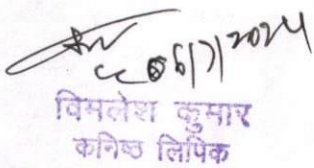 06/7/2024
विमलेश कुमार
कनिष्ठ लिपिक